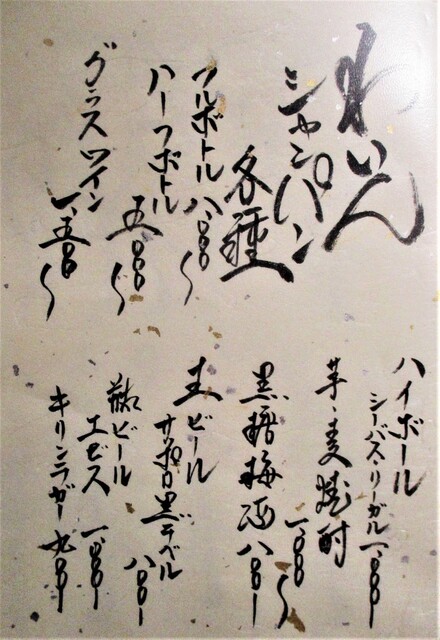 わいん
シャンパン
各種
フルボトル 八、〇〇〇〜
ハーフボトル
五、〇〇〇〜
グラスワイン
一、五〇〇〜
ハイボール
シーバス・リーガル 一、〇〇〇ー
芋・麦焼酎
一、〇〇〇〜
黒糖梅酒 八〇〇ー
生ビール
サッポロ黒ラベル
八〇〇ー
瓶ビール
エビス 一、〇〇〇ー
キリンラガー 九〇〇ー